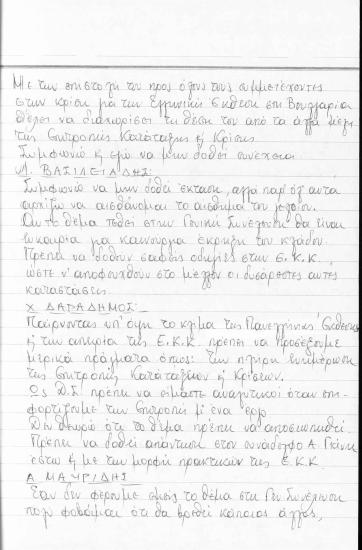 Με την επιστολή του προς όλους τους συμμετέχοντες
στην κρίση για την Ελληνική Έκθεση στη Βουλγαρία
θέλει να διαχωρίσει τη θέση του από τα άλλα μέλη
της Επιτροπής Κατάταξης & Κρίσης.
Συμφωνώ & εγώ να μην δοθεί συνέχεια
Λ. ΒΑΣΙΛΕΙΑΔΗΣ:
Συμφωνώ να μην δοθεί έκταση, αλλά παρ' όλ' αυτά
αρχίζω να αισθάνομαι το αίσθημα του
Αν το θέμα τεθεί στην Γενική Συνέλευση θα είναι
ευκαιρία για καινούργια έκρηξη του κλάδου.
Πρέπει να δοθούν σαφείς οδηγίες στην Ε.Κ.Κ.
ώστε ν' αποφευχθούν στο μέλλον οι δυσάρεστες αυτές
καταστάσεις
Χ. ΔΑΡΑΔΗΜΟΣ:
Παίρνοντας υπ' όψη το κλίμα της Πανελλήνιας Έκθεσης
& την απειρία της Ε.Κ.Κ. πρέπει να προσέξουμε
μερικά πράγματα όπως: την πλήρη ενημέρωση
της Επιτροπής Κατατάξεων & Κρίσεων.
Ως Δ.Σ. πρέπει να είμαστε αναλυτικοί όταν επι-
φορτίζουμε την Επιτροπή μ' ένα έργο
Δεν θεωρώ ότι το θέμα πρέπει να αποσιωπηθεί.
Πρέπει να δοθεί απάντηση στον συνάδελφο Α. Γιάννη
έστω & με την μορφή πρακτικών της Ε.Κ.Κ.
Α. ΜΑΥΡΙΔΗΣ:
Εάν δεν φέρουμε εμείς το θέμα στη Γεν. Συνέλευση
πολύ φοβάμαι ότι θα βρεθεί κάποιος άλλος,